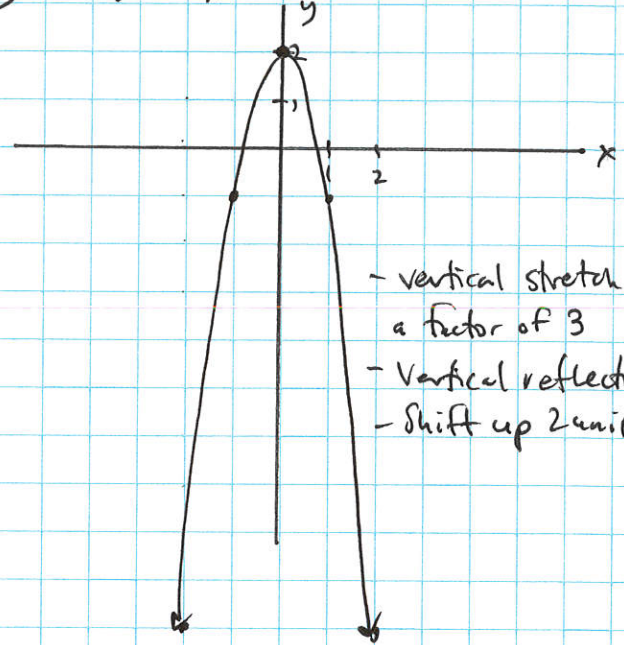 y
2
1
x
1
2
- vertical stretch
a factor of 3
- Vertical reflect
- Shift up 2 uni